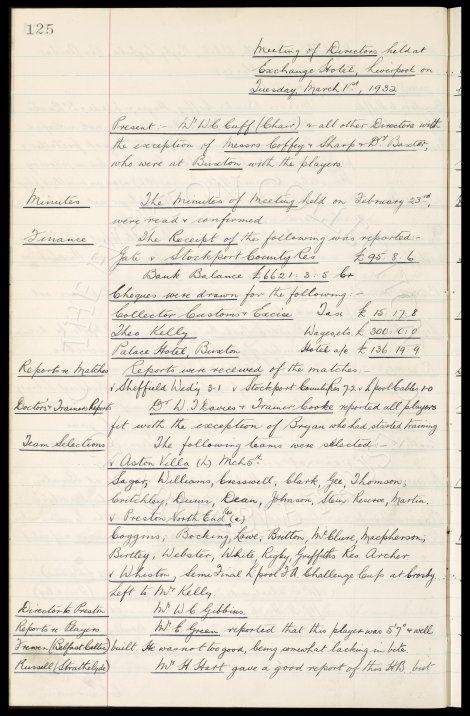 125
Meeting of Directors held at
Exchange Hotel, Liverpool on
Tuesday, March 1st, 1932
Present:- Mr W C Cuff (Chair) & all other Directors with
the exception of Messrs Coffey & Sharp & Dr Baxter,
who were at Buxton with the players.
Minutes The Minutes of Meeting held on February 23rd,
were read & confirmed
Finance The Receipt of the following was reported:-
Gate v Stockport County Res £95. 8. 6
Bank Balance £6621: 3: 5 Cr
Cheques were drawn for the following:-
Collector Customs & Excise Tax £ 15. 17. 8
Theo Kelly Wages etc £ 300: 0: 0
Palace Hotel, Buxton Hotel a/c £ 136. 19. 9
Reports re Matches Reports were received of the matches:-
v Sheffield Wed'y 3-1 v Stockport County Res 7-3 v L'pool Cables 1-0
Doctor's & Trainers Reports Dr W J Davies & Trainer Cooke reported all players
fit with the exception of Bryan who had started training
Team Selections The following teams were selected:-
v Aston Villa (h) Mch 5th
Sagar, Williams, Cresswell, Clark, Gee, Thomson;
Critchley, Dunn, Dean, Johnson, Stein Reserve, Martin.
v Preston North End Res (a)
Coggins; Bocking, Lowe; Britton, McClure, Macpherson;
Birtley, Webster, White Rigby, Griffiths Res. Archer
v Whiston, Semi Final L'pool F A Challenge Cup at Crosby
Left to Mr Kelly
Director to Preston Mr W C Gibbins.
Reports re Players Mr E Green reported that this player was 5'9" & well
(Belfast Celtic) built. He was not too good, being somewhat lacking in bite.
Russell (Strathclyde) Mr H Hart gave a good report of this H B, but